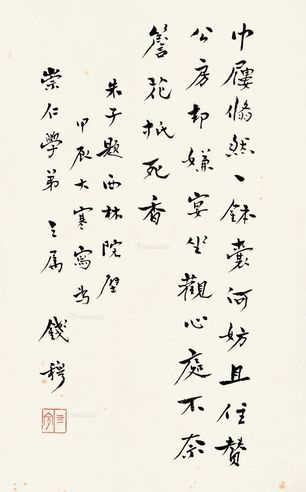 巾屨翛然一鉢囊何妨且住贊
公房却嫌宴坐觀心處不奈
簷花抵死香
朱子題西林院壁
甲辰大寒寫為
崇仁學弟之屬 錢穆